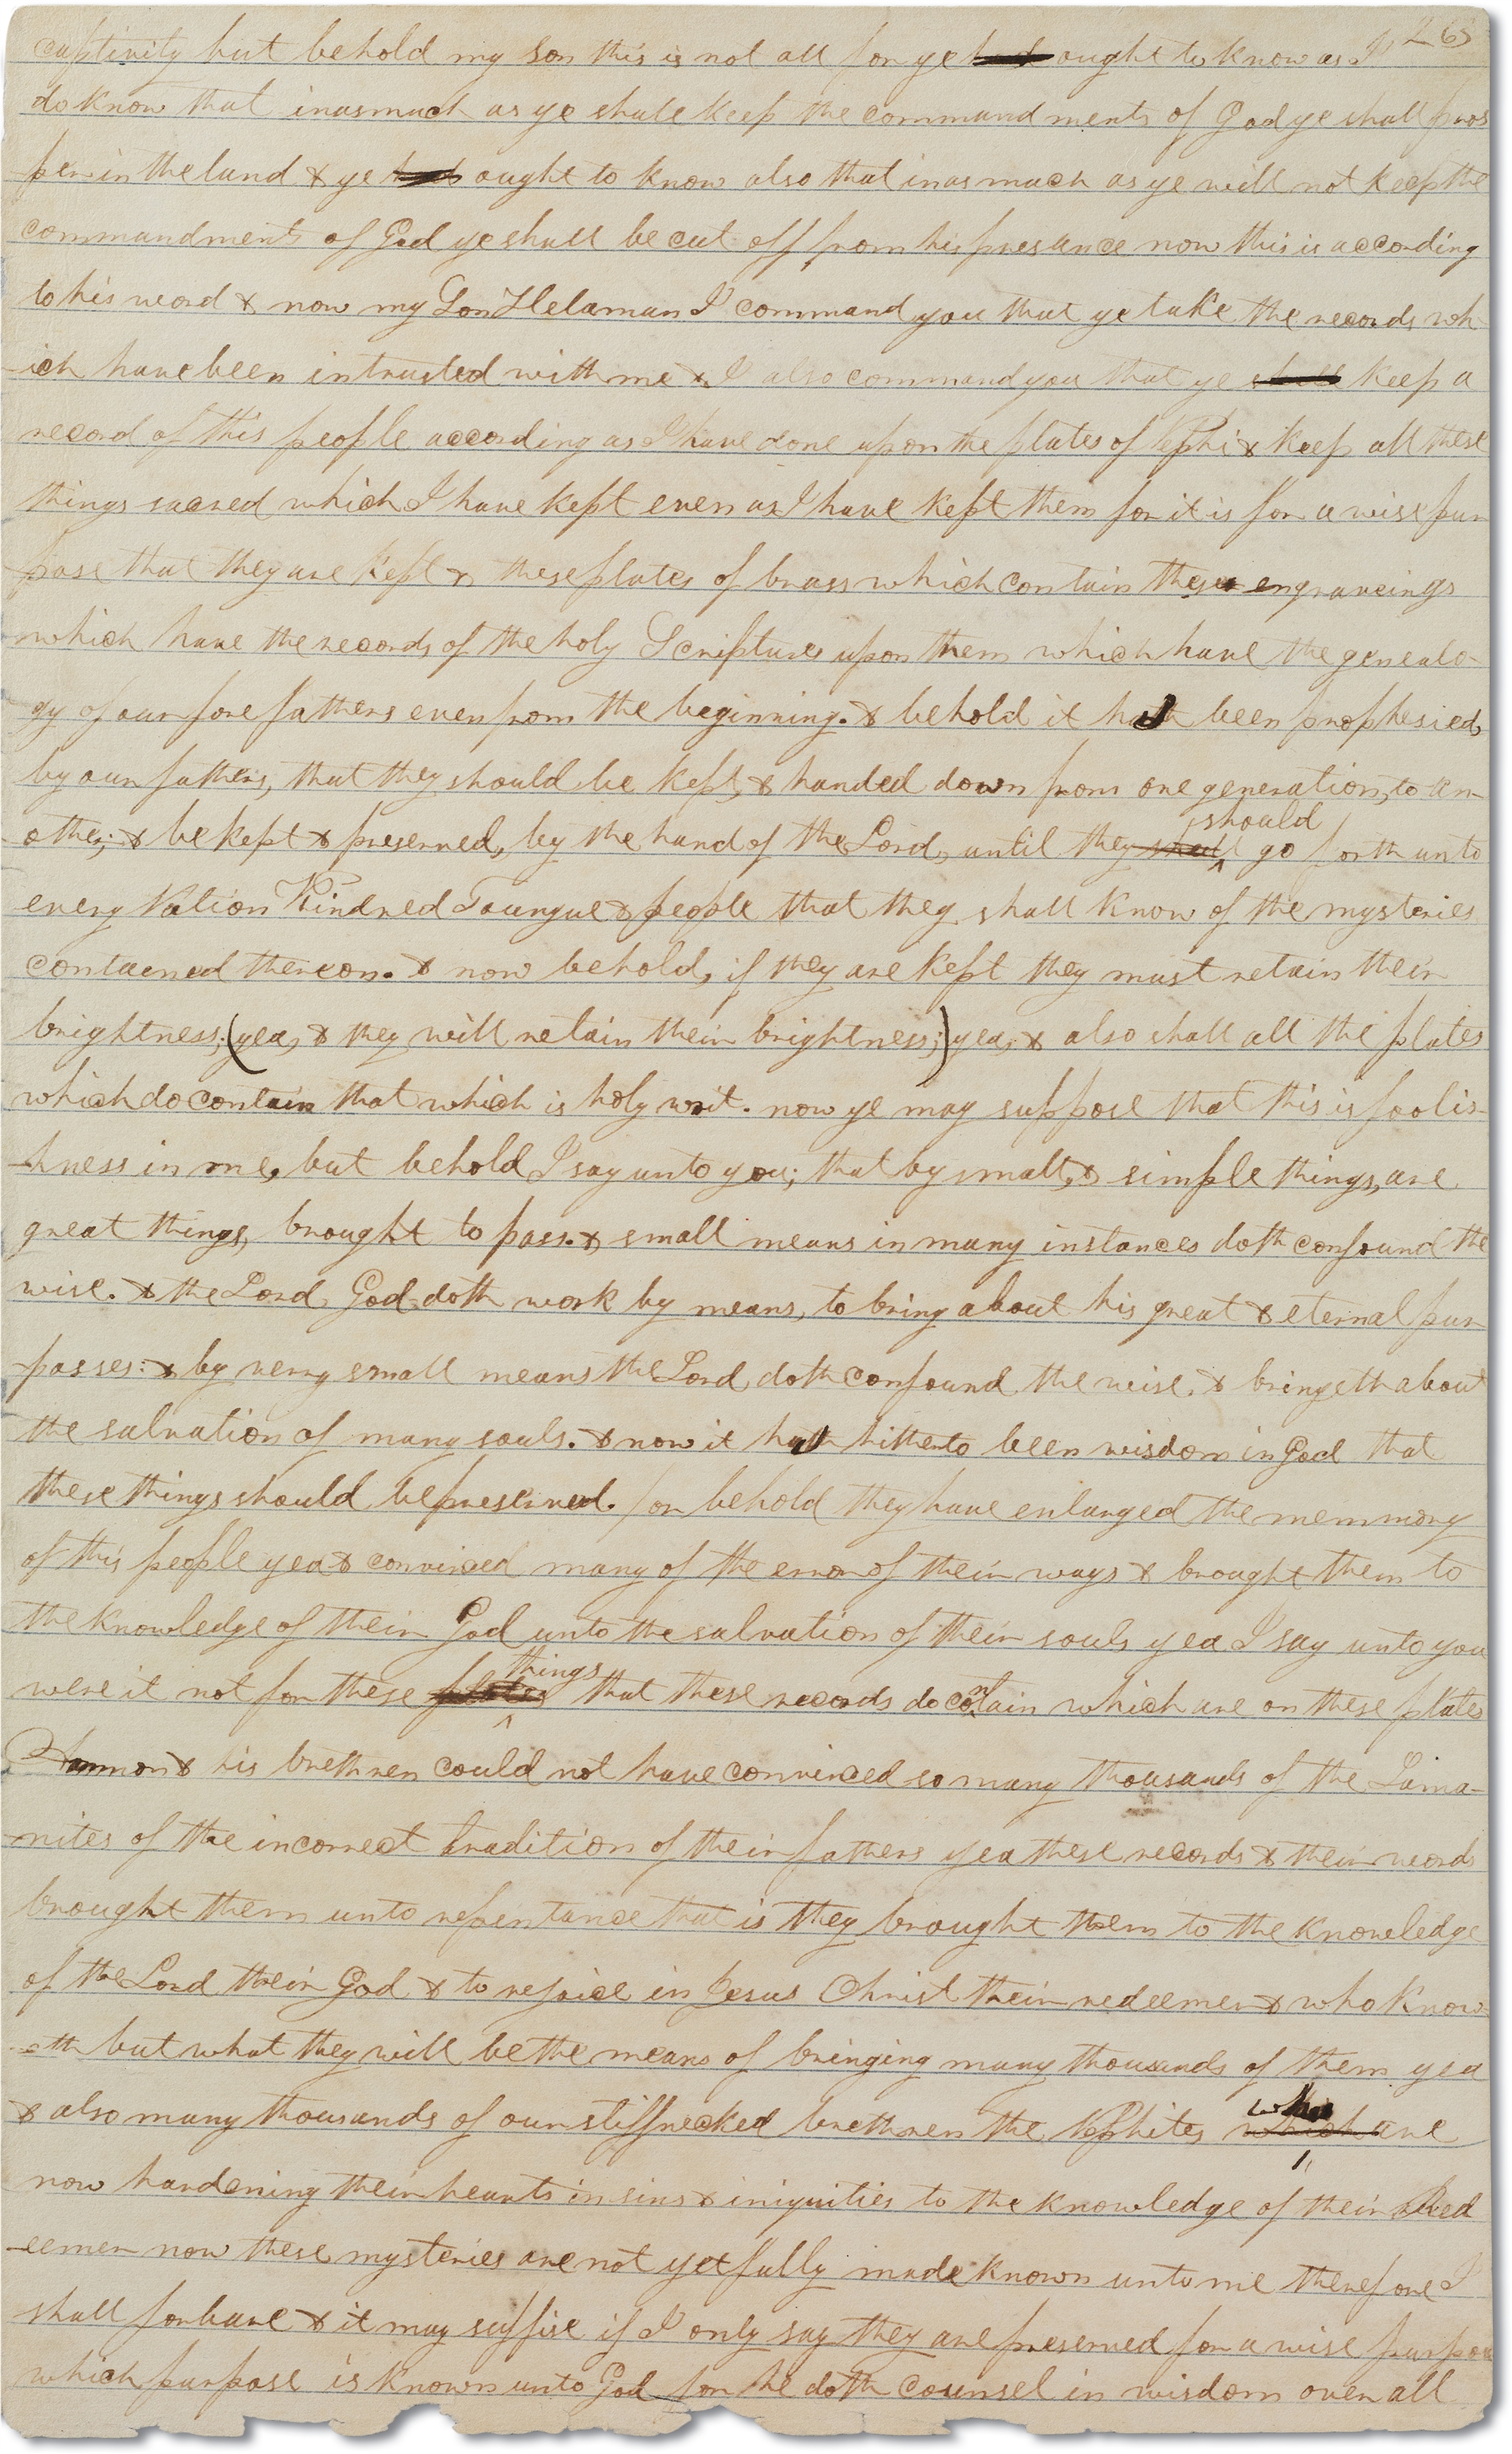 263
captivity but behold my son this is not all for ye had ought to know as I
do know that inasmuch as ye shall keep the commandments of God ye shall pros
per in the land & ye had ought to know also that inasmuch as ye will not keep the
commandments of God ye shall be cut off from his presance now this is according
to his word & now my Son Helaman I command you that ye take the records wh-
-ich have been intrusted with me & I also command you that ye shall keep a
record of this people according as I have done upon the plates of Nephi & keep all these
things sacred which I have kept even as I have kept them for it is for a wise pur
pose that they are kept & these plates of brass which contain these engraveings
which have the records of the holy Scriptures upon them which have the genealo-
gy of our forefathers even from the beginning. & behold it hath been prophesied,
by our fathers, that they should be kept, & handed down from one generation, to an-
-other; & be kept & preserved, by the hand of the Lord, until they shall should go forth unto
every Nation Kindred Toungue & people that they shall know of the mysteries
contained thereon. & now behold, if they are kept they must retain their
brightness; (yea, & they will retain their brightness;) yea, & also shall all the plates
which do contain that which is holy writ. now ye may suppose that this is foolis-
-hness in me, but behold I say unto you; that by small, & simple things, are
great things, brought to pass. & small means in many instances doth confound the
wise. & the Lord God doth work by means, to bring about his great & eternal pur
-posses: & by verry small means the Lord, doth confound the wise, & bringeth about
the salvation of many souls. & now it hath hitherto been wisdom in God that
these things should be preserved. for behold they have enlarged the memmory
of this people yea & convinced many of the error of their ways & brought them to
the knowledge of their God unto the salvation of their souls yea I say unto you
were it not for these plates things that these records do contain which are on these plates
Ammon & his brethren could not have convinced so many thousands of the Lama-
-nites of the incorrect tradition of their fathers yea these records & their words
brought them unto repentance that is they brought them to the knowledge
of the Lord their God & to rejoice in Jesus Christ their redeemer & who know-
-eth but what they will be the means of bringing many thousands of them yea
& also many thousands of our stiffnecked brethren the Nephites which who are
now hardening their hearts in sins & iniquities to the knowledge of their Red
-eemer now these mysteries are not yet fully made known unto me therefore I
shall forbare & it may suffise if I only say they are preserved for a wise purpos
which purpose is known unto God for he doth counsel in wisdom over all